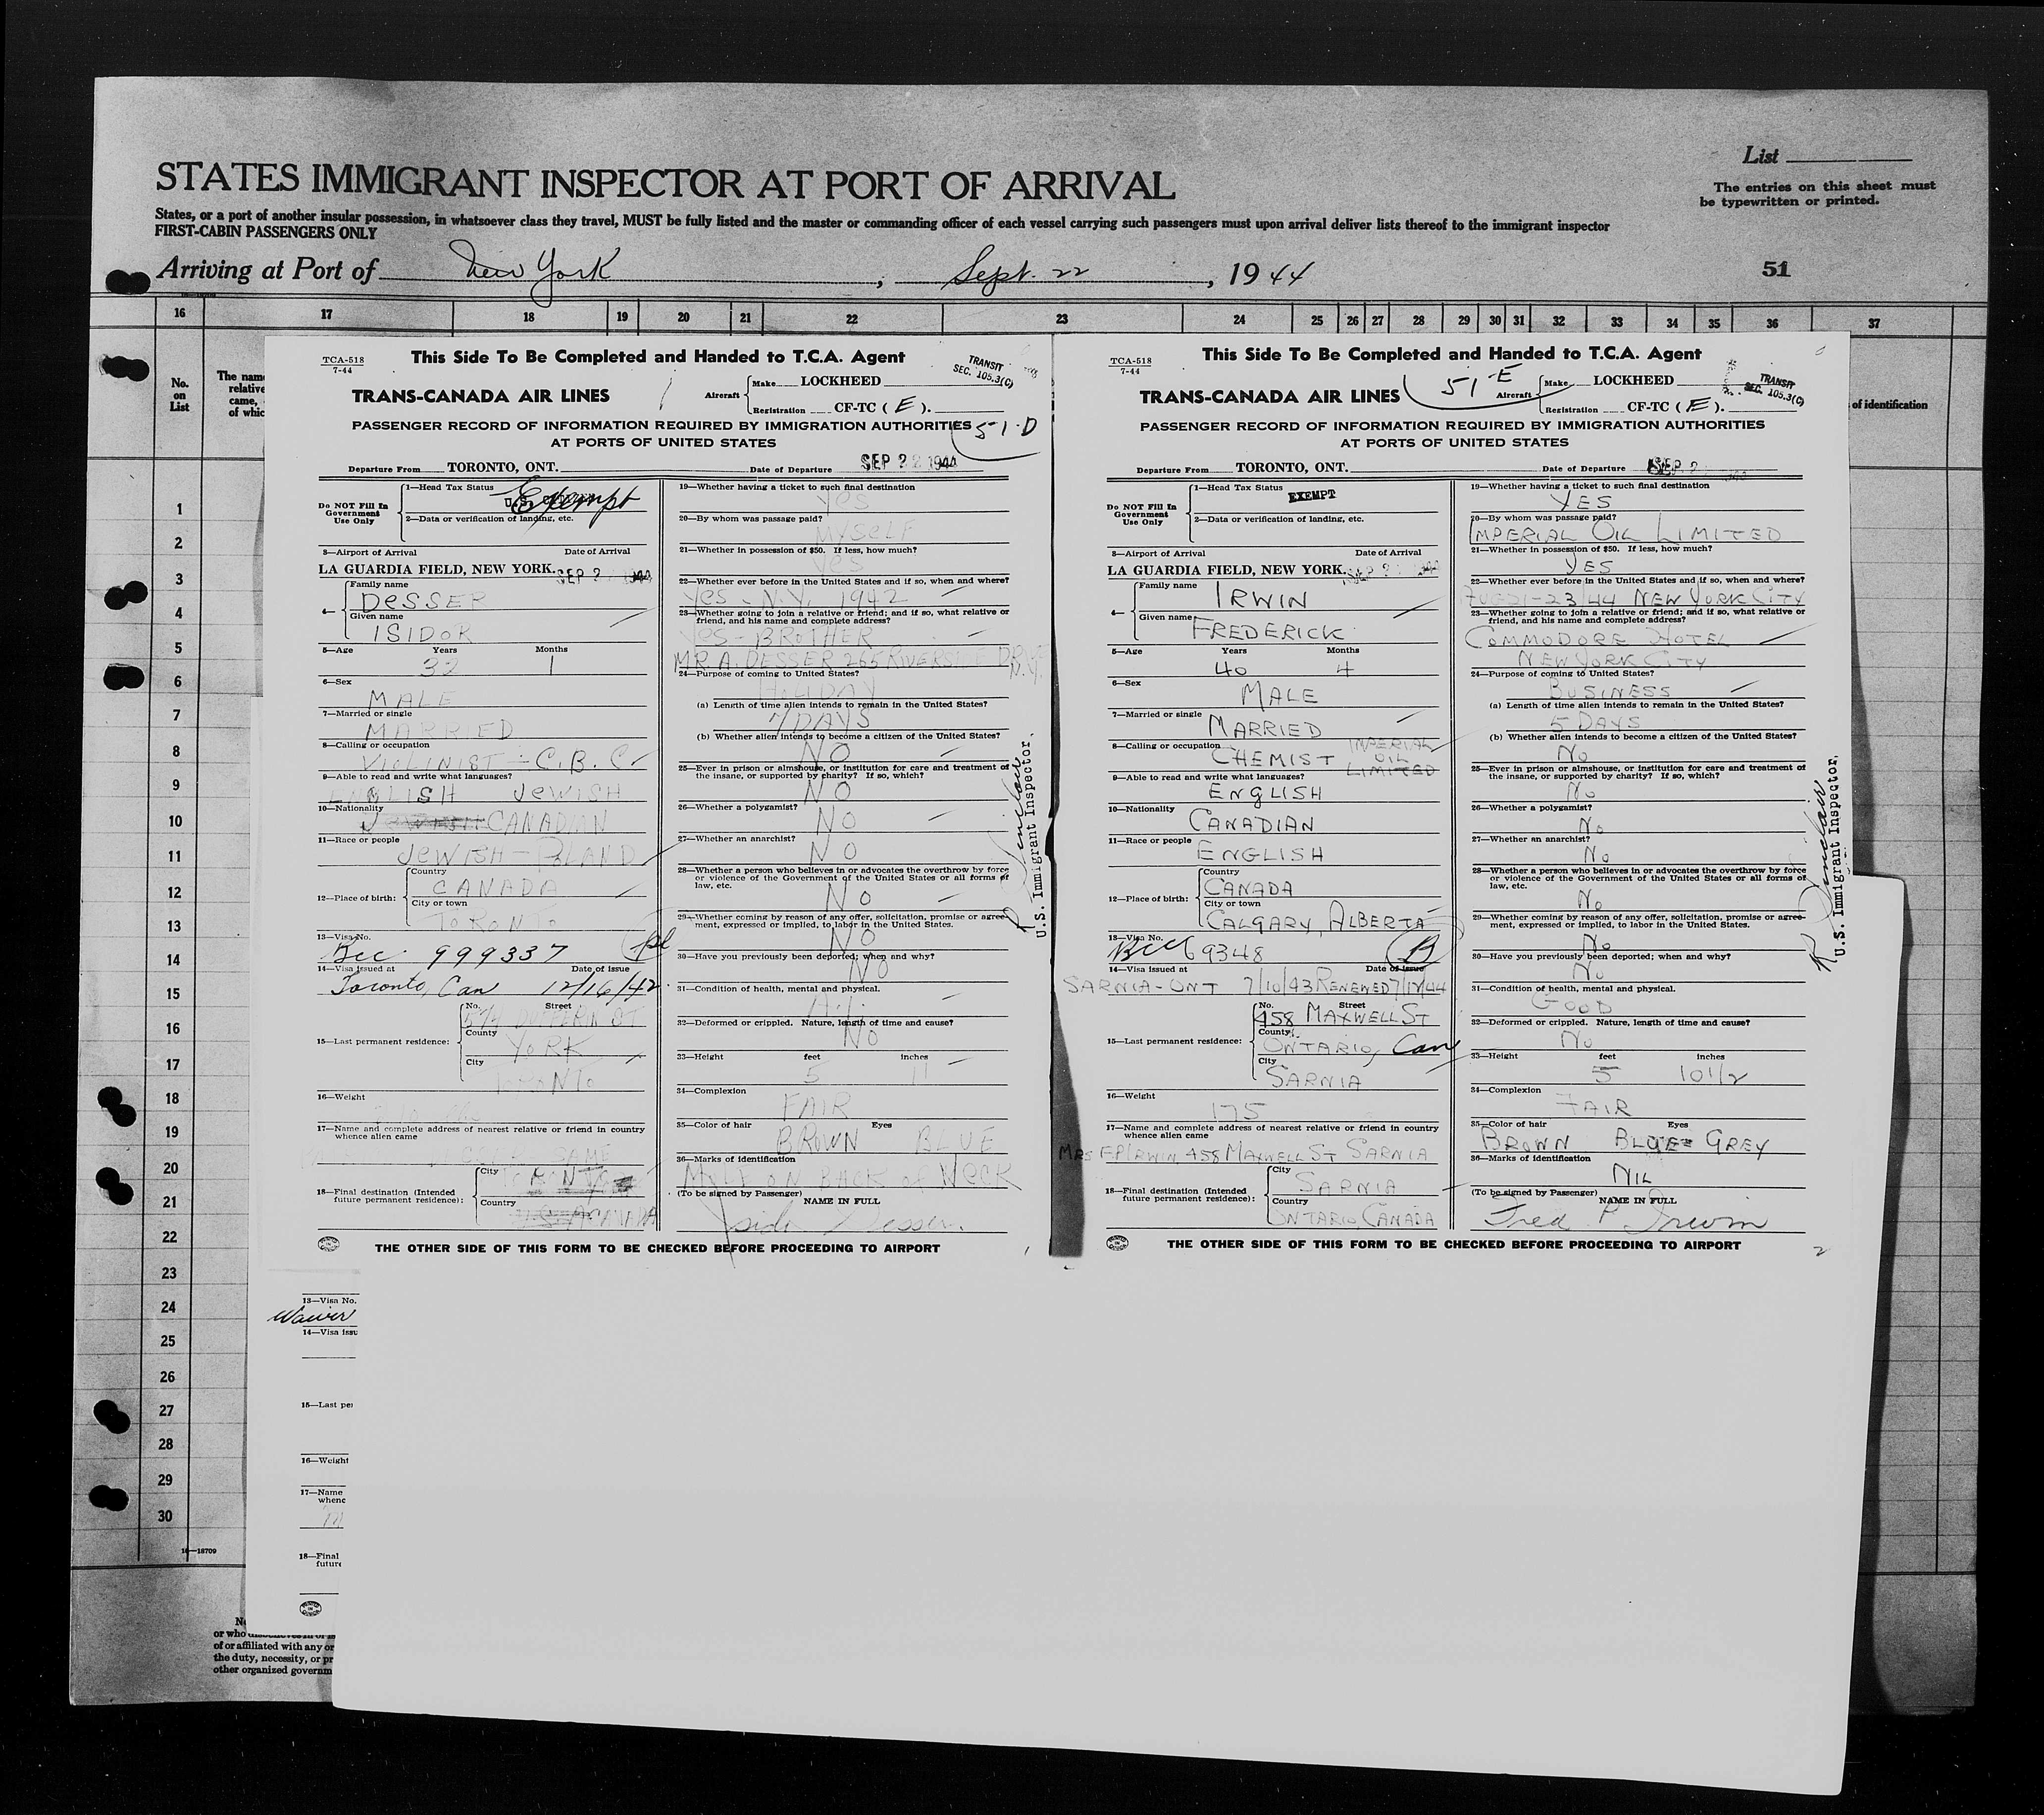 List
STATES IMMIGRANT INSPECTOR AT PORT OF ARRIVAL
The entries on this sheet must
be typewritten or printed.
States, or a port of another insular possession, in whatsoever class they travel, MUST be fully listed and the master or commanding officer of each vessel carrying such passengers must upon arrival deliver lists thereof to the immigrant inspector
FIRST-CABIN PASSENGERS ONLY
Arriving at Port of New York, Sept. 22, 1944
51
16 17 18 19 20 21 22 23 24 25 26 27 28 29 30 31 32 33 34 35 36 37
No.
on
List
The nam
relative
came,
of whic
of identification
1
2
3
4
5
6
7
8
9
10
11
12
13
14
15
16
17
18
19
20
21
22
23
24
25
26
27
28
29
30
TCA-518
7-44
This Side To Be Completed and Handed to T.C.A. Agent
TRANSIT
SEC. 105.3(C)
TRANS-CANADA AIR LINES
Aircraft
Make LOCKHEED
Registration CF-TC ( E ).
PASSENGER RECORD OF INFORMATION REQUIRED BY IMMIGRATION AUTHORITIES
AT PORTS OF UNITED STATES
51-D
Departure From TORONTO, ONT. Date of Departure SEP 22 1944
Do NOT Fill In
Government
Use Only
1—Head Tax Status
Exempt
2—Data or verification of landing, etc.
3—Airport of Arrival Date of Arrival
LA GUARDIA FIELD, NEW YORK. SEP 2 1944
4— Family name
DESSER
Given name
ISIDOR
5—Age Years Months
32 1
6—Sex
MALE
7—Married or single
MARRIED
8—Calling or occupation
VIOLINIST - C.B.C.
9—Able to read and write what languages?
ENGLISH JEWISH
10—Nationality
CANADIAN
11—Race or people
JEWISH - POLAND
12—Place of birth: Country
CANADA
City or town
TORONTO
13—Visa No.
Bcc 999337
14—Visa issued at Date of issue
Toronto, Can 12/16/42
15—Last permanent residence:
No. Street
DUFFERIN ST
County
YORK
City
TORONTO
16—Weight
17—Name and complete address of nearest relative or friend in country
whence alien came
SAME
18—Final destination (Intended
future permanent residence):
City
Country
CANADA
19—Whether having a ticket to such final destination
Yes
20—By whom was passage paid?
MYSELF
21—Whether in possession of $50. If less, how much?
Yes
22—Whether ever before in the United States and if so, when and where?
Yes - N.Y. 1942
23—Whether going to join a relative or friend; and if so, what relative or
friend, and his name and complete address?
Yes - BROTHER
MR. A. DESSER 265 RIVERSIDE DRIVE
N.Y.
24—Purpose of coming to United States?
HOLIDAY
(a) Length of time alien intends to remain in the United States?
7 DAYS
(b) Whether alien intends to become a citizen of the United States?
NO
25—Ever in prison or almshouse, or institution for care and treatment of
the insane, or supported by charity? If so, which?
NO
26—Whether a polygamist?
NO
27—Whether an anarchist?
NO
28—Whether a person who believes in or advocates the overthrow by force
or violence of the Government of the United States or all forms of
law, etc.
NO
29—Whether coming by reason of any offer, solicitation, promise or agree-
ment, expressed or implied, to labor in the United States.
NO
30—Have you previously been deported; when and why?
NO
31—Condition of health, mental and physical.
32—Deformed or crippled. Nature, length of time and cause?
NO
33—Height feet inches
5 11
34—Complexion
FAIR
35—Color of hair Eyes
BROWN BLUE
36—Marks of identification
ON BACK of NECK
(To be signed by Passenger) NAME IN FULL
Isidor Desser
U.S. Immigrant Inspector.
THE OTHER SIDE OF THIS FORM TO BE CHECKED BEFORE PROCEEDING TO AIRPORT
TCA-518
7-44
This Side To Be Completed and Handed to T.C.A. Agent
TRANSIT
SEC. 105.3(C)
TRANS-CANADA AIR LINES
51-E
Aircraft
Make LOCKHEED
Registration CF-TC ( E ).
PASSENGER RECORD OF INFORMATION REQUIRED BY IMMIGRATION AUTHORITIES
AT PORTS OF UNITED STATES
Departure From TORONTO, ONT. Date of Departure SEP 2
Do NOT Fill In
Government
Use Only
1—Head Tax Status
EXEMPT
2—Data or verification of landing, etc.
3—Airport of Arrival Date of Arrival
LA GUARDIA FIELD, NEW YORK. SEP 2
4— Family name
IRWIN
Given name
FREDERICK
5—Age Years Months
40 4
6—Sex
MALE
7—Married or single
MARRIED
8—Calling or occupation
CHEMIST IMPERIAL OIL LIMITED
9—Able to read and write what languages?
ENGLISH
10—Nationality
CANADIAN
11—Race or people
ENGLISH
12—Place of birth: Country
CANADA
City or town
CALGARY, ALBERTA
13—Visa No.
BCC 69348
14—Visa issued at Date of issue
SARNIA - ONT 7/10/43 RENEWED 7/17/44
15—Last permanent residence:
No. Street
458 MAXWELL ST
County
ONTARIO, Can
City
SARNIA
16—Weight
175
17—Name and complete address of nearest relative or friend in country
whence alien came
MRS F.P. IRWIN, 458 MAXWELL ST SARNIA
18—Final destination (Intended
future permanent residence):
City
SARNIA
Country
ONTARIO CANADA
19—Whether having a ticket to such final destination
YES
20—By whom was passage paid?
IMPERIAL OIL LIMITED
21—Whether in possession of $50. If less, how much?
YES
22—Whether ever before in the United States and if so, when and where?
AUG 21-23/44 NEW YORK CITY
23—Whether going to join a relative or friend; and if so, what relative or
friend, and his name and complete address?
COMMODORE HOTEL
NEW YORK CITY
24—Purpose of coming to United States?
BUSINESS
(a) Length of time alien intends to remain in the United States?
5 DAYS
(b) Whether alien intends to become a citizen of the United States?
No
25—Ever in prison or almshouse, or institution for care and treatment of
the insane, or supported by charity? If so, which?
No
26—Whether a polygamist?
No
27—Whether an anarchist?
No
28—Whether a person who believes in or advocates the overthrow by force
or violence of the Government of the United States or all forms of
law, etc.
No
29—Whether coming by reason of any offer, solicitation, promise or agree-
ment, expressed or implied, to labor in the United States.
No
30—Have you previously been deported; when and why?
No
31—Condition of health, mental and physical.
GOOD
32—Deformed or crippled. Nature, length of time and cause?
No
33—Height feet inches
5 10 1/2
34—Complexion
FAIR
35—Color of hair Eyes
BROWN BLUE-GREY
36—Marks of identification
NIL
(To be signed by Passenger) NAME IN FULL
Fred P. Irwin
U.S. Immigrant Inspector.
THE OTHER SIDE OF THIS FORM TO BE CHECKED BEFORE PROCEEDING TO AIRPORT
2
13—Visa No.
Waiver
14—Visa issu
15—Last per
16—Weight
17—Name
whenc
18—Final
future
16—18709
No
or who
of or affiliated with any or
the duty, necessity, or pr
other organized governm